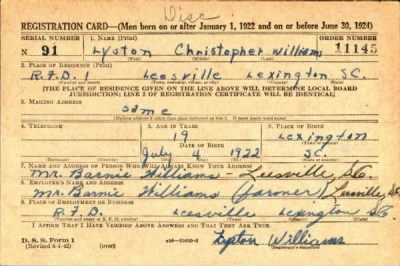 Disc
REGISTRATION CARD—(Men born on or after January 1, 1922 and on or before June 30, 1924)
SERIAL NUMBER 1. NAME (Print) ORDER NUMBER
N 91 Lyston Christopher Williams 11145
(First) (Middle) (Last)
2. PLACE OF RESIDENCE (Print)
R.F.D. 1 Leesville Lexington S.C.
(Number and street) (Town, township, village, or city) (County) (State)
[THE PLACE OF RESIDENCE GIVEN ON THE LINE ABOVE WILL DETERMINE LOCAL BOARD
JURISDICTION; LINE 2 OF REGISTRATION CERTIFICATE WILL BE IDENTICAL]
3. MAILING ADDRESS
same
4. TELEPHONE 5. AGE IN YEARS 6. PLACE OF BIRTH
19 Lexington
DATE OF BIRTH
July 4 1922 S.C.
(Exchange) (Number) (Mo.) (Day) (Yr.) (State or country)
7. NAME AND ADDRESS OF PERSON WHO WILL ALWAYS KNOW YOUR ADDRESS
Mr. Barnie Williams - Leesville, S.C.
8. EMPLOYER'S NAME AND ADDRESS
Mr. Barnie Williams (farmer) Leesville, S.C.
9. PLACE OF EMPLOYMENT OR BUSINESS
R.F.D. Leesville Lexington S.C.
(Number and street or R. F. D. number) (Town) (County) (State)
I AFFIRM THAT I HAVE VERIFIED ABOVE ANSWERS AND THAT THEY ARE TRUE.
D. S. S. Form 1
(Revised 6-1-42) (over) Lyston Williams